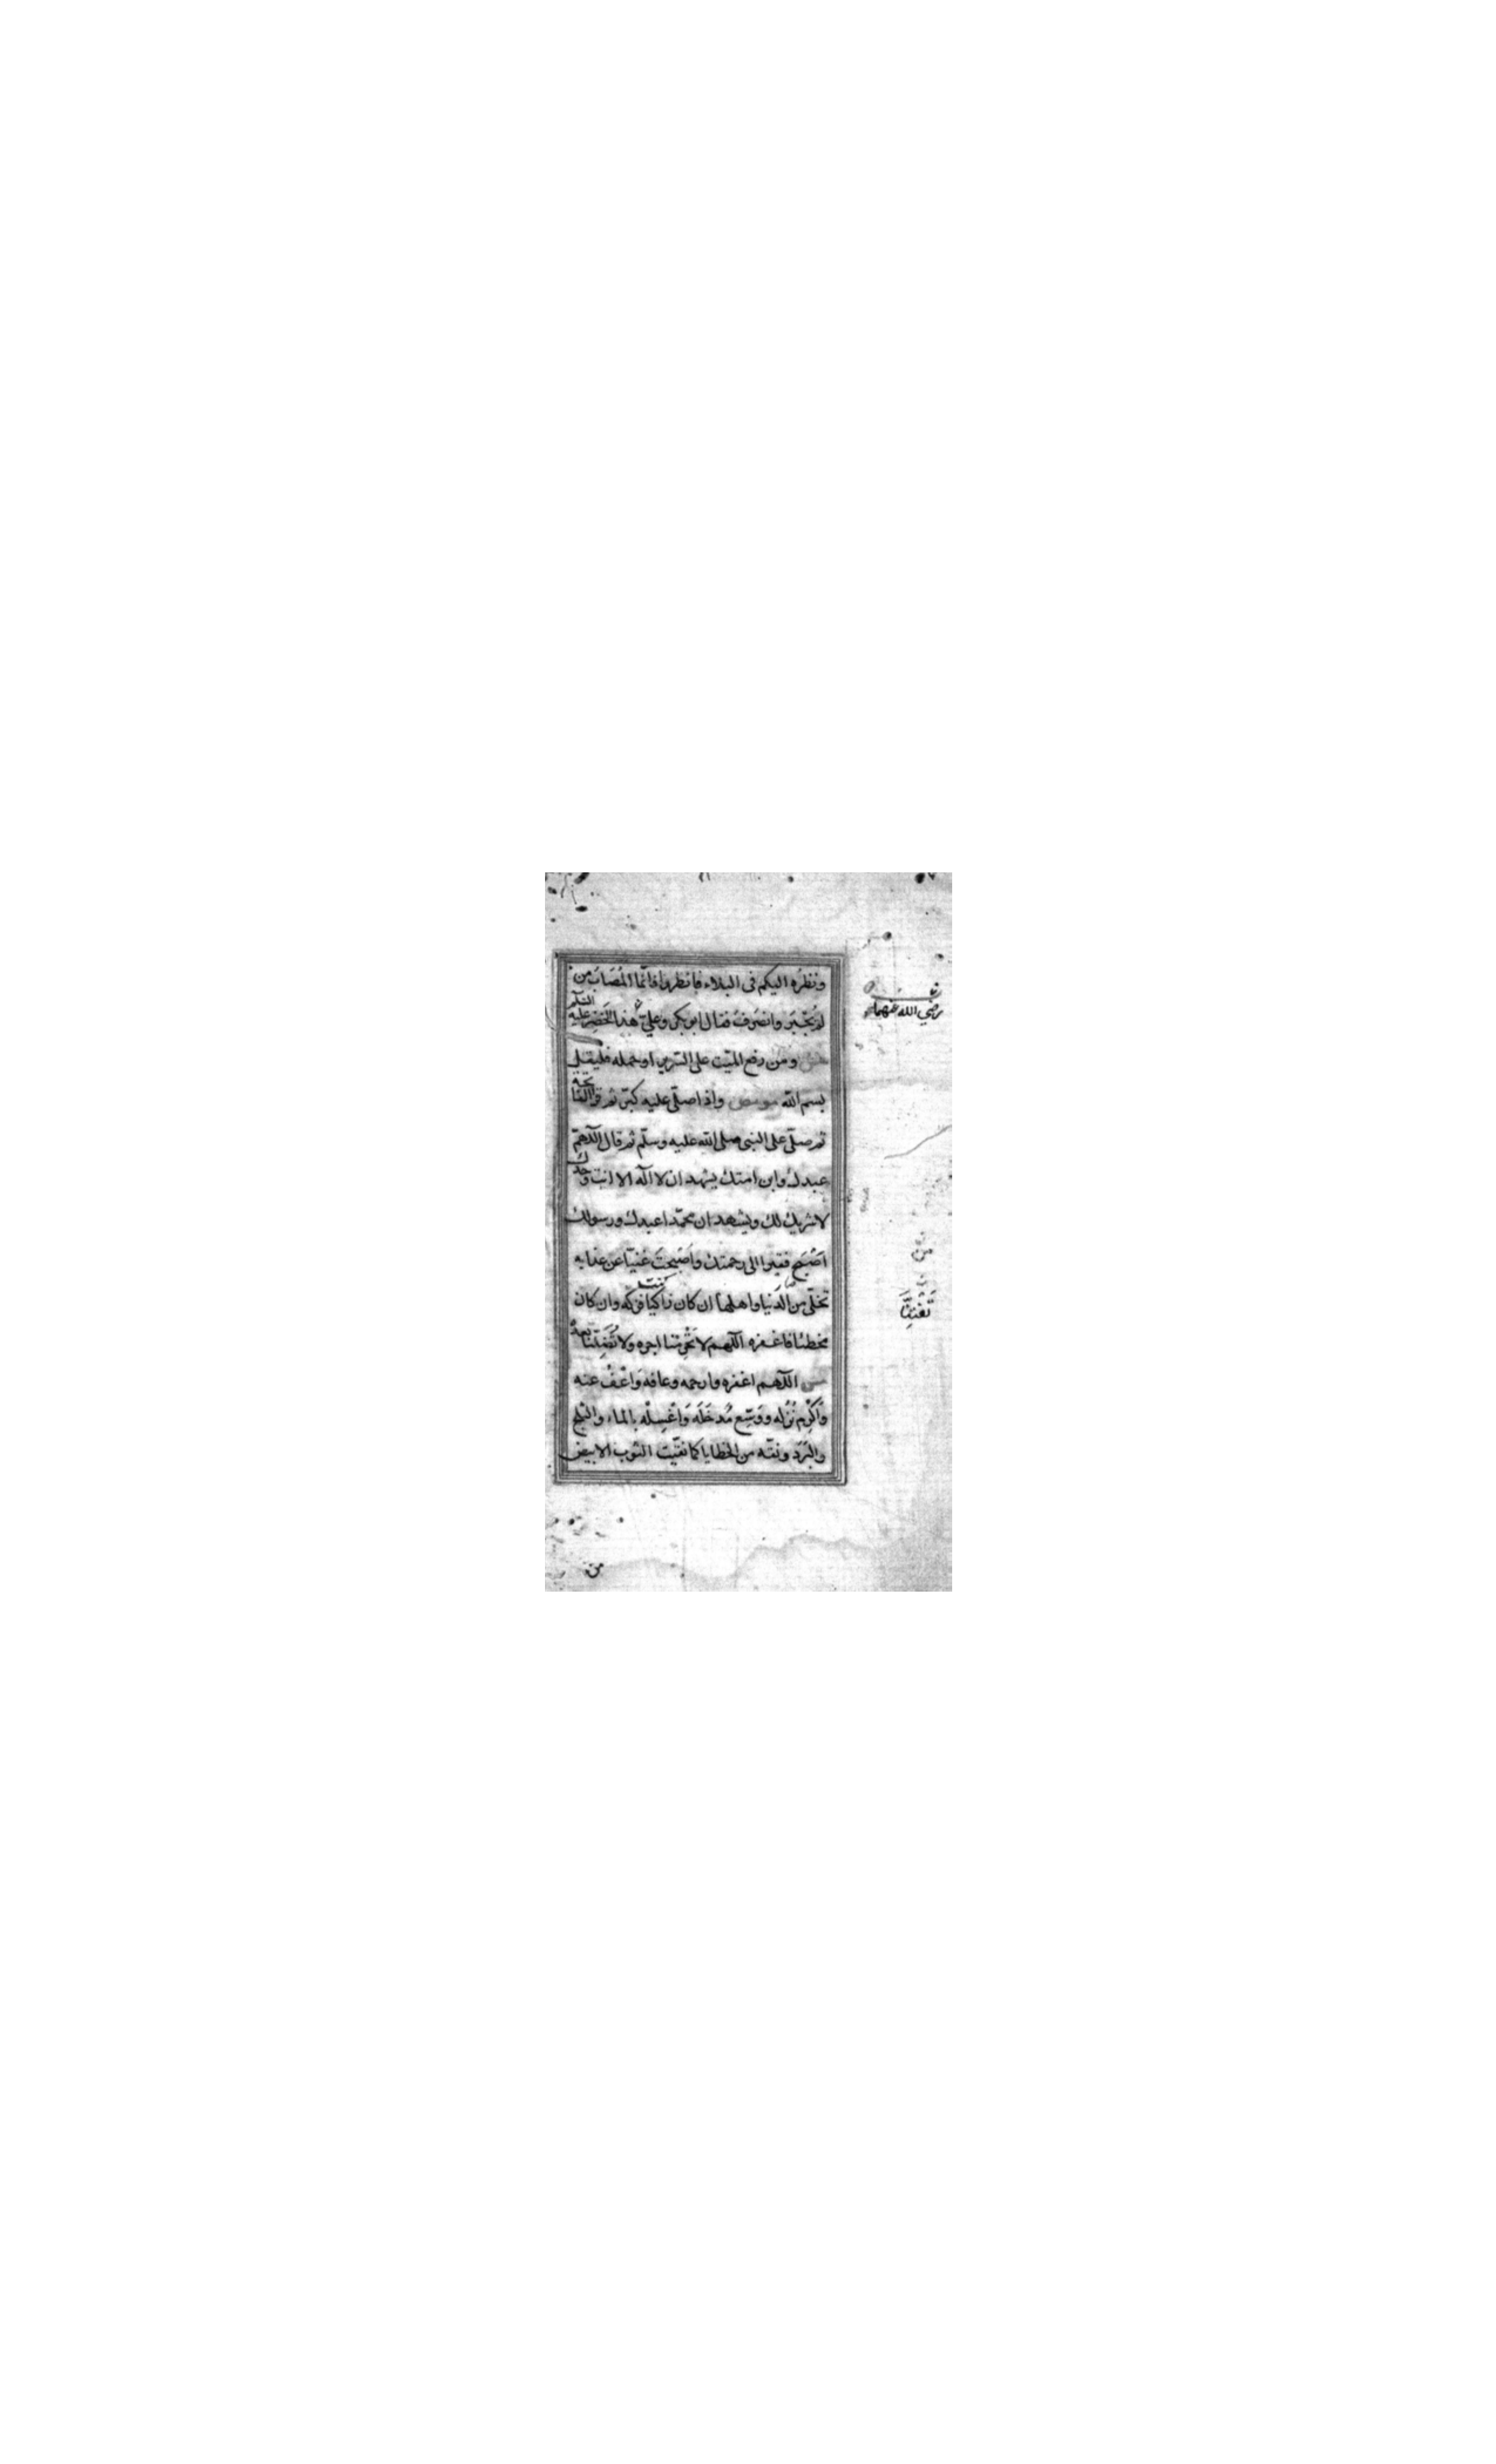 ونظرُه اليكم فى البلاء فانظروا فانّما المُصَابُ من
لم يُجْبَر وانصَرفَ فقال ابو بكر وعلىّ هذا الخَضِر عليه السّلم
ومن رفع الميّت على السّرير او حمله فليقل
بسم الله مومص واذا صلّى عليه كبّر ثم قرا الفاتحة
ثم صلّى على النبى صلى الله عليه وسلّم ثم قال اللّهمّ
عبدك وابن امتك يشهد ان لا اله الا انت وحدك
لا شريك لك ويشهد ان محمّدا عبدك ورسولك
اَصْبَح فقيرا الى رحمتك واَصْبَحتَ غنيّا عن عذابه
تخلّى من الدّنيا واهلها ان كان زاكيا فزكّه وان كان
مخطئا فاغفره اللّهم لا تَحْرِمنا اجره ولا تُضِلّنا بعدهُ
اللّهم اغفره وارحمه وعافه وَاعْفُ عنه
وَاَكْرِم نُزُله ووَسِّع مُدخَلَه وَاغْسِله بالماء والثلج
والبَرَد ونقّه من الخطايا كما نقّيت الثوب الابيض
رضي الله عنهما
تَفْتِنَّا
من